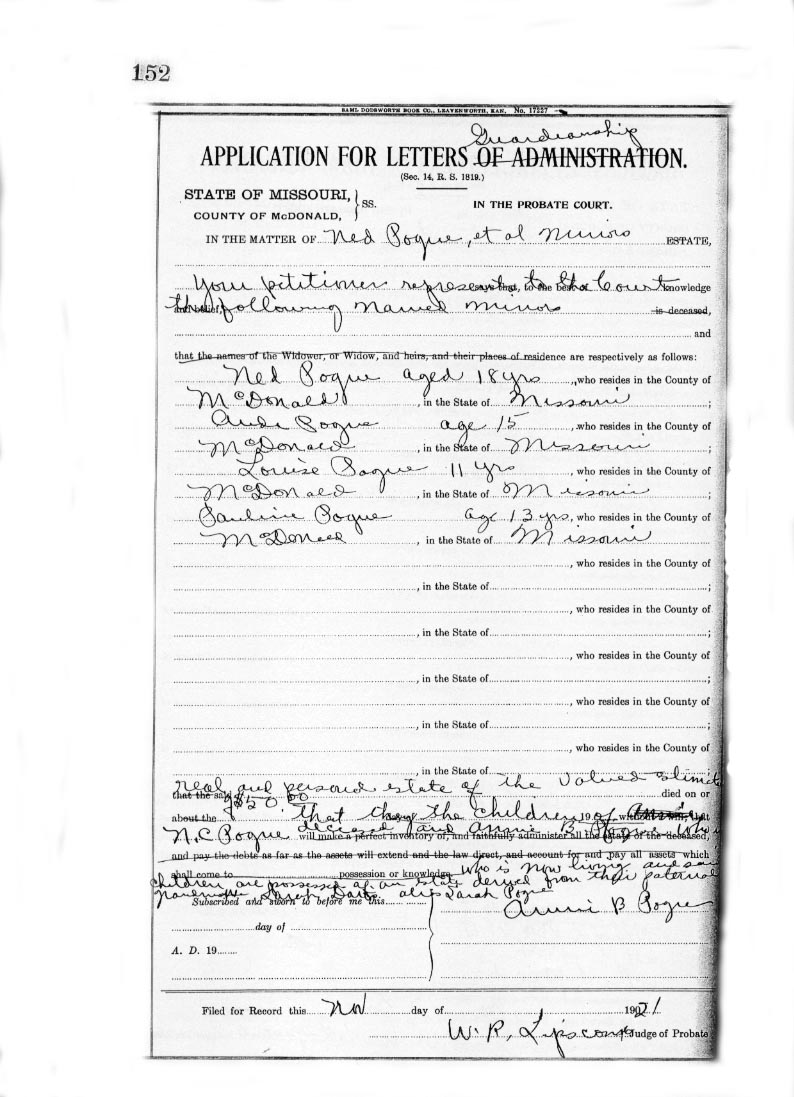 152
SAML DODSWORTH BOOK CO., LEAVENWORTH, KAN. No. 17227
Guardianship
APPLICATION FOR LETTERS OF ADMINISTRATION.
(Sec. 14, R. S. 1819.)
STATE OF MISSOURI, } SS.
COUNTY OF McDONALD,
IN THE PROBATE COURT.
IN THE MATTER OF Ned Pogue, et al Minors ESTATE,
Your petitioner represents to the Court knowledge
the following named minors is deceased,
and
that the names of the Widower, or Widow, and heirs, and their places of residence are respectively as follows:
Ned Pogue aged 18 yrs , who resides in the County of
McDonald , in the State of Missouri ;
Pogue age 15 , who resides in the County of
McDonald , in the State of Missouri ;
Louise Pogue 11 yrs , who resides in the County of
McDonald , in the State of Missouri ;
Pauline Pogue age 13 yrs , who resides in the County of
McDonald , in the State of Missouri
, who resides in the County of
, in the State of ;
, who resides in the County of
, in the State of ;
, who resides in the County of
, in the State of ;
, who resides in the County of
, in the State of ;
, who resides in the County of
, in the State of ;
real and personal estate of the Valued
that the said $850.00 died on or
about the that they the children 190 of
N.C. Pogue deceased and Annie B Pogue who
will make a perfect inventory of, and faithfully administer all the estate of the deceased,
and pay the debts as far as the assets will extend and the law direct, and account for and pay all assets which
shall come to possession or knowledge. who is now living and said
children are possessed of an estate derived from their paternal
Sarah alias Sarah Pogue
Subscribed and sworn to before me this
Annie B Pogue
day of
A. D. 19
Filed for Record this Nov day of 1 1921
W. R. Lipscomb Judge of Probate